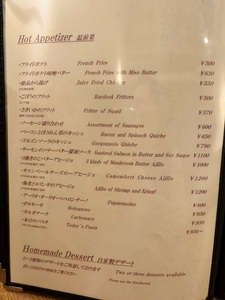 Hot Appetizer 温前菜
・フライドポテト French Fries ¥500
・フライドポテト味噌バター French Fries with Miso Butter ¥650
・若鶏の唐揚げ Juicy Fried Chicken ¥550
・ごぼうのフリット Burdock Fritters ¥500
Fritter of Squid ¥570
・ソーセージ盛り合わせ Assortment of Sausages ¥600
・ベーコンとほうれん草のキッシュ Bacon and Spinach Quiche ¥650
・ゴルゴンゾーラのキッシュ Gorgonzola Quiche ¥780
・サーモンのソテーバター醤油ソース Sauteed Salmon in Butter and Soy Sauce ¥1200
・3種きのこバターアヒージョ 3 kinds of Mushroom Butter Ajillo ¥1000
・カマンベールチーズのアヒージョ Camembert Cheese Ajillo ¥1200
・海老とエリンギのアヒージョ Ajillo of Shrimp and Eringi ¥1200
・アーリオ・オーリオ・ペペロンチーノ Peperoncino ¥800
・ボロネーゼ Bolognese ¥950
・カルボナーラ Carbonara ¥950
・本日のパスタ Today's Pasta ¥850~
Homemade Dessert 自家製デザート
2～3種類のデザートをご用意しております
Two or three desserts available.
Please see the blackboard.